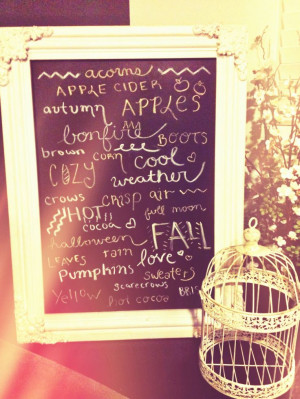 acorns
APPLE CIDER
autumn APPLES
bonfire
brown CORN BOOTS
COZY cool
weather
crows CRISP air
HOT!! full moon
cocoa FALL
halloween
LEAVES rain love
PUMPKINS sweaters
scarecrows
Yellow hot cocoa